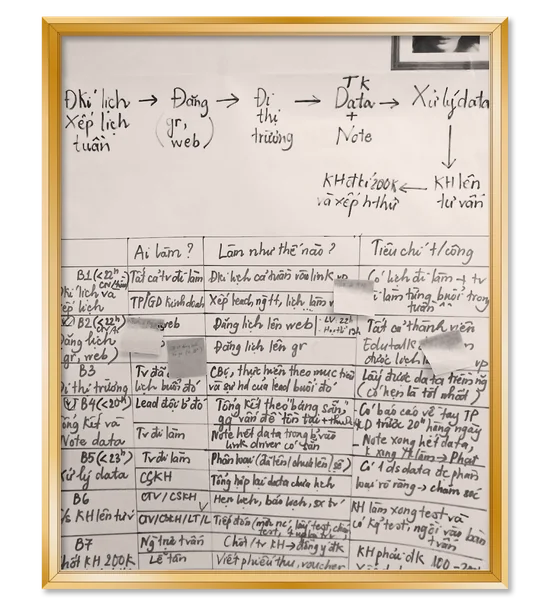 Đkí lịch → Đăng → Đi → TK Data → Xử lý data
Xếp lịch (gr, thị +
tuần web) trường Note
KH đkí 200K ← KH lên
và xếp h thử tư vấn
Ai làm? Làm như thế nào? Tiêu chí t/công
B1 (<22h Tất cả tv đi làm Đkí lịch cả tuần vào link Có lịch đi làm → tv
Đkí lịch và TP/GD Kinh doanh Xếp team, ng tt, lịch làm v đi làm từng buổi trong
xếp lịch tuần
B2 (<22h web Đăng lịch lên web LV 22h Tất cả thành viên
Đăng lịch Đăng lịch lên gr Edutalk
(gr, web) được lịch vp
B3 Tv đã CBC, thực hiện theo mục tiêu Lấy được data tiềm năng
Đi thị trường lịch buổi đó và sự hd của lead buổi đó (có hẹn là tốt nhất)
B4 (<20h) Lead đội b đó Tổng kết theo bảng sẵn, Có báo cáo về tay TP
Tổng kết và gq vấn đề tồn tại + KD trước 20h hàng ngày
Note data Tv đi làm Note hết data trong b vào Note xong hết data,
link driver có sẵn k xong k làm → Phạt
B5 (<23h) Tv đi làm Phân loại Có 1 ds data đc phân
Xử lý data CSKH Tổng hợp lại data chưa lịch loại rõ ràng → chăm sóc
B6 CTV/CSKH Hẹn lịch, báo lịch, sx tv KH làm xong test và
KH lên tư v CTV/CSKH/LT/L Tiếp đón có kq test, ngồi vào bàn
t vấn
B7 Ng trực t vấn Chốt/tv KH → đồng ý đk KH phải đk 100 - 200
chốt KH 200K Lễ tân Viết phiếu thu, voucher